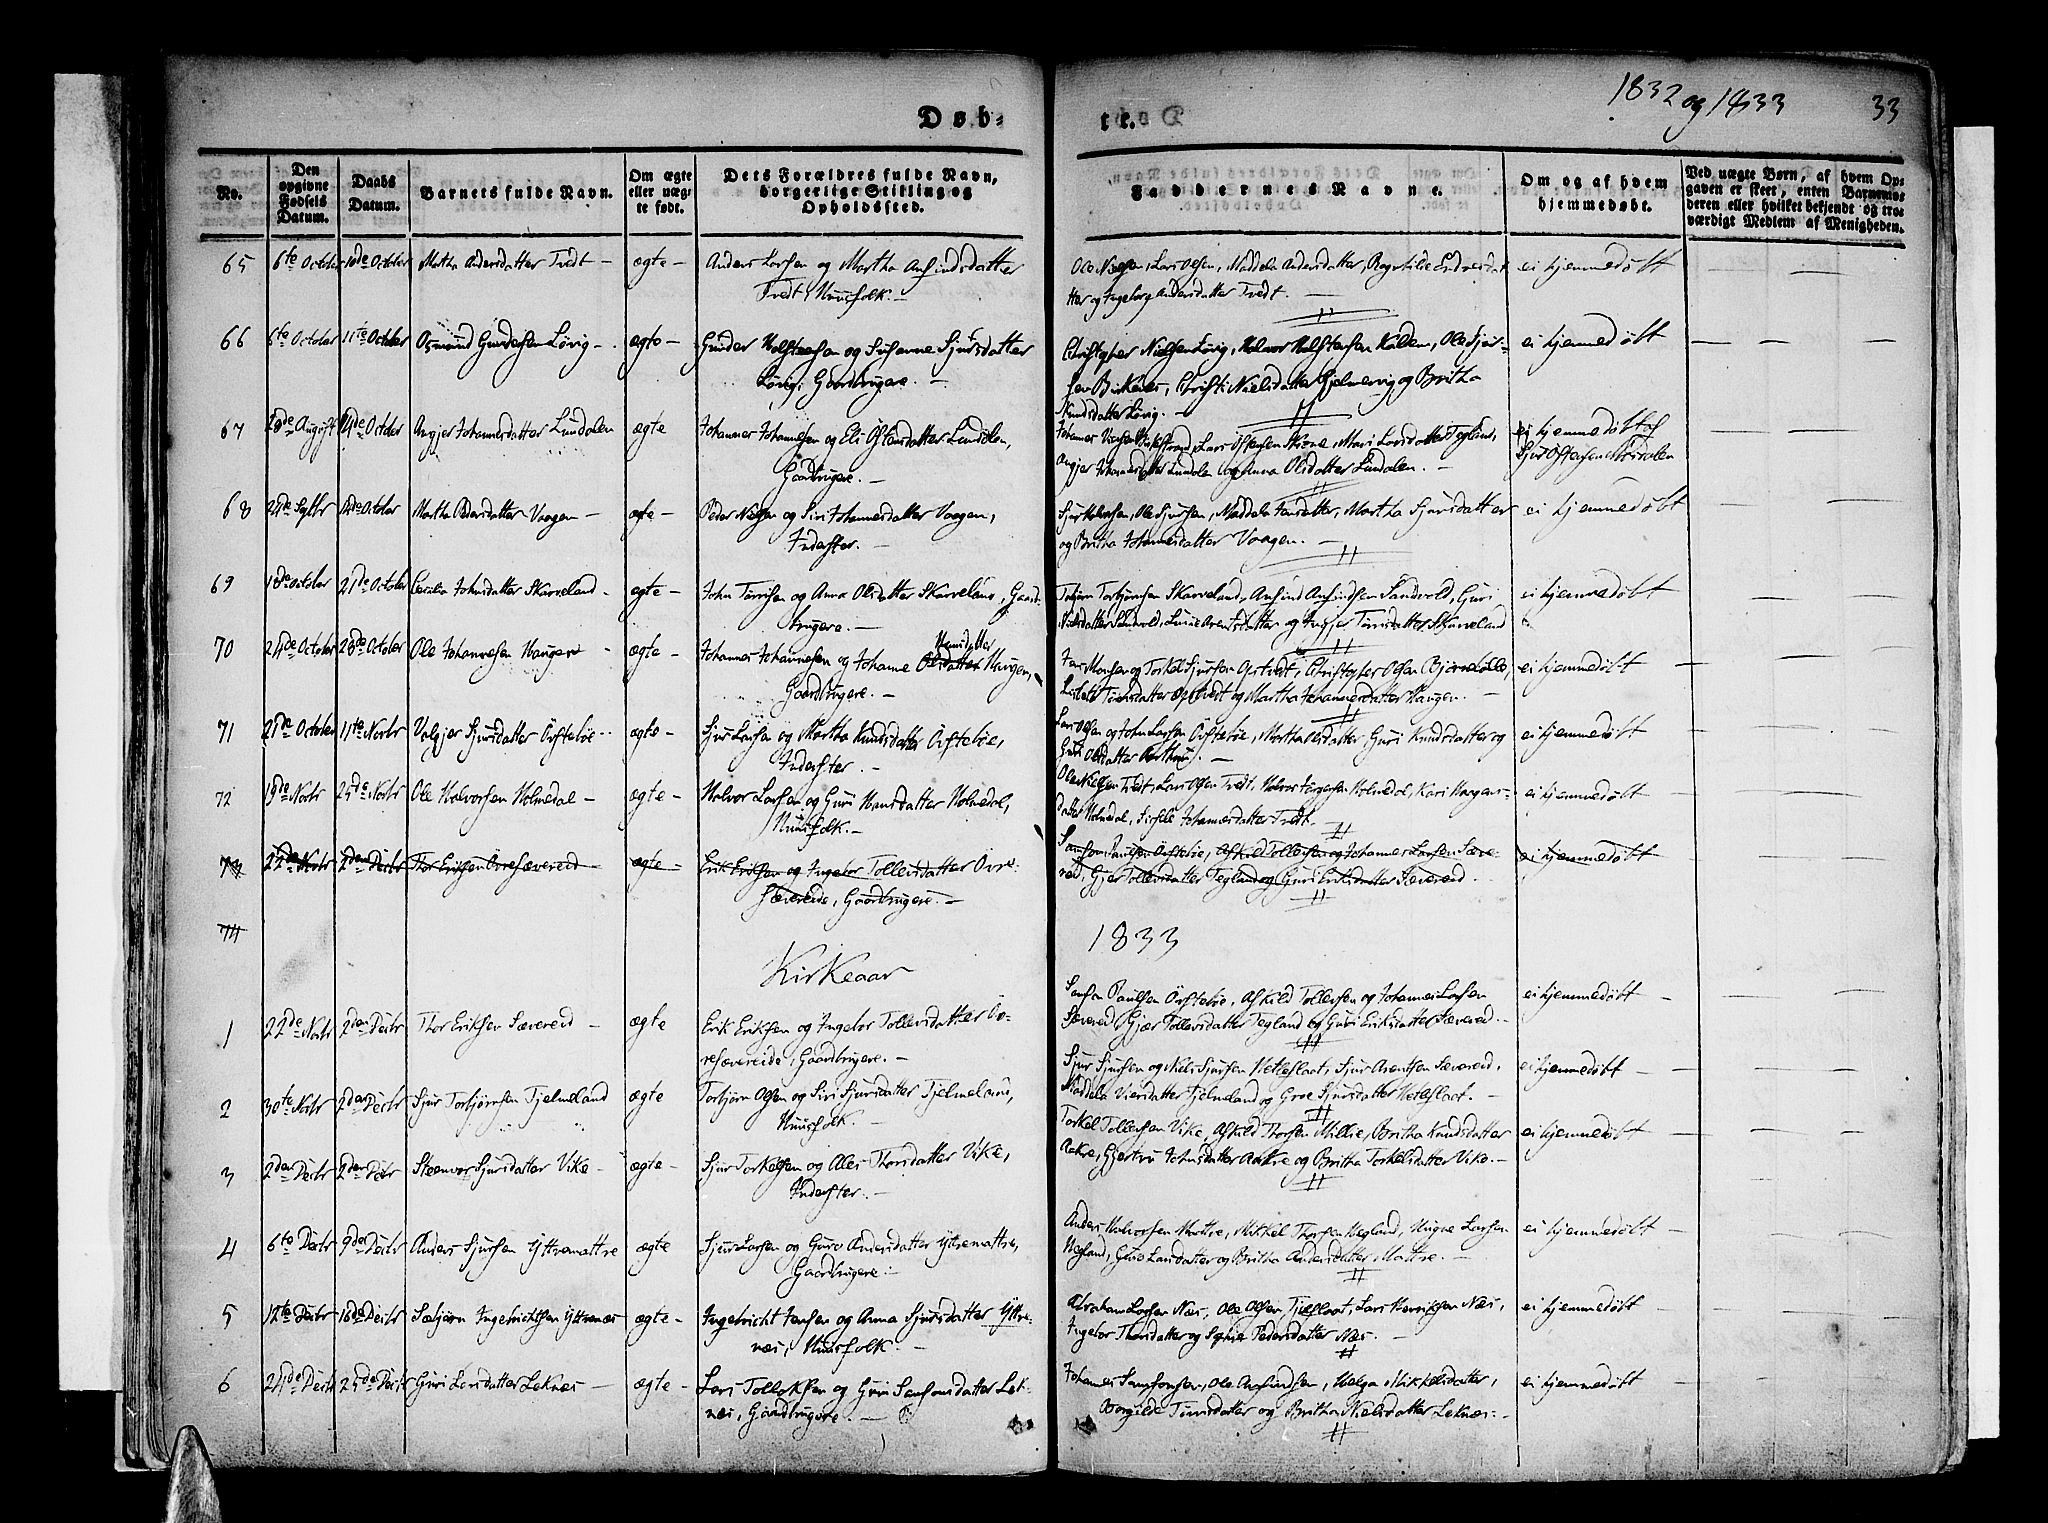 Døb-
te.
1832 og 1833
33
No.
Den opgivne Fødsels Datum.
Daabs Datum.
Barnets fulde Navn.
Om ægte eller uægte født.
Dets Forældres fulde Navn, borgerlige Stilling og Opholdssted.
Faddernes Navne.
Om og af hvem hjemmedøbt.
Ved uægte Børn, af hvem Opgaven er skeet, enten Barnemoderen eller hvilket bekjendt og troværdigt Medlem af Menigheden.
65 6te October October Martha Andersdatter Tvedt – ægte – Anders Larsen og Martha Anfindsdatter
Tvedt, Huusfolk. –
Ole Nielsen, Lars Olsen, Maddela Andersdatter, Ragnhilde Endresdat
ter og Ingeborg Andersdatter Tvedt. –
ei hjemmedøbt
66 6te October 11te October Osmund Gundersen Løvig – ægte – Gunder Holstensen og Susanne Sjursdatter
Løvig, Gaardbrugere. –
Christopher Nielsen Løvig, Halvor Holstensen Kolden, Ole Sjur-
sen Birkenes, Christi Nielsdatter Gjelmervig og Britha
Knudsdatter Løvig. –
ei hjemmedøbt
67 28de August 14de October Angjer Johannesdatter Lundalen ægte Johannes Johannesen og Eli Østensdatter Lundalen,
Gaardbrugere. –
Johannes, Lars Østensen Skime, Mari Larsdatter Tegland,
Angjer Johannesdatter Lundalen og Anna Olsdatter Lundalen. –
hjemmedøbt af
Sjur Østensen
68 24de Septbr 14de October Martha Pedersdatter Vaagen – ægte – Peder Nielsen og Siri Johannesdatter Vaagen,
Inderster. –
Sjur Halvorsen, Ole Sjursen, Maddela Jansdatter, Martha Sjursdatter
og Britha Johannesdatter Vaagen. –
ei hjemmedøbt
69 October 21de October Cecilia Johnsdatter Skarveland – ægte – John Tørrisen og Anna Olsdatter Skarveland, Gaard-
brugere. –
Torbjørn Torbjørnsen Skarveland, Anfind Anfindsen Sandvold, Guri
Nielsdatter Sandvold, Arentsdatter og Ingjer Tørrisdatter Skarveland
ei hjemmedøbt
70 24de October 28de October Ole Johannesen Haugen – ægte – Johannes Johannesen og Johanne Olsdatter Hansdatter Haugen,
Gaardbrugere. –
Jan Monsen og Torkel Sjursen Opstvedt, Christopher Olsen,
Tørrisdatter Opstvedt og Martha Johannesdatter Haugen. –
ei hjemmedøbt
71 21de October 11te Novbr Valgjer Sjursdatter Østebøe – ægte – Sjur Larsen og Martha Knudsdatter Østebøe,
Inderster. –
Lars Olsen og John Larsen Østebøe, Martha Olsdatter, Guri Knudsdatter og
Guri Olsdatter. –
ei hjemmedøbt
72 19de Novbr 25de Novbr Ole Halvorsen Holmedal – ægte – Halvor Larsen og Guri Hansdatter Holmedal,
Huusfolk. –
Ole Nielsen Tvedt, Lars Olsen Tvedt, Halvor Torgersen Holmedal, Kari Haagens-
datter Holmedal, Sissele Johannesdatter Tvedt. –
ei hjemmedøbt
73 22de Novbr 2den Decbr Thor Eriksen Øvresævereid – ægte – Erik Eriksen og Ingebor Tollevsdatter Øvre-
sævereide, Gaardbrugere. –
Samson Paulsen Østebøe, Askild Tollevsen og Johannes Larsen Sæve-
reid, Gjør Tollevsdatter Tegland og Guri Eriksdatter Sævereid. –
ei hjemmedøbt
74
Kirkeaar
1833
1 22de Novbr 2den Decbr Thor Eriksen Sævereid – ægte Erik Eriksen og Ingebor Tollevsdatter Øv-
resævereide, Gaardbrugere. –
Samson Paulsen Østebøe, Askild Tollevsen og Johannes Larsen
Sævereid, Gjør Tollevsdatter Tegland og Guri Eriksdatter Sævereid. –
ei hjemmedøbt
2 30te Novbr 2den Decbr Sjur Torbjørnsen Tjelmeland ægte Torbjørn Olsen og Siri Sjursdatter Tjelmeland,
Huusfolk. –
Sjur Sjursen og Niels Sjursen Hetleflaat, Sjur Arentsen Sævereid,
Maddela Vieresdatter Tjelmeland og Groe Sjursdatter Hetleflaat. –
ei hjemmedøbt
3 2den Decbr 2den Decbr Steenvor Sjursdatter Vike – ægte – Sjur Torkelsen og Ales Thorsdatter Vike,
Inderster. –
Torkel Tollevsen Vike, Askild Thorsen Millie, Britha Knudsdatter
Aakre, Gjertru Johnsdatter Aakre og Britha Torkelsdatter Vike. –
ei hjemmedøbt
4 6te Decbr 9de Decbr Anders Sjursen Yttremattre ægte Sjur Larsen og Guro Andersdatter Yttremattre,
Gaardbrugere. –
Anders Halvorsen Mattre, Mikkel Thorsen Hegland, Magne Larsen
Hegland, Guro Larsdatter og Britha Andersdatter Mattre. –
ei hjemmedøbt
5 12te Decbr 16de Decbr Sæbjørn Ingebrichtsen Yttrenæs ægte – Ingebricht Jansen og Anna Sjursdatter Yttre-
næs, Huusfolk –
Abraham Larsen Næs, Ole Olsen Tjelflaat, Lars Henriksen Næs,
Ingebor Thorsdatter og Sophia Pedersdatter Næs. –
ei hjemmedøbt
6 24de Decbr 25de Decbr Guri Larsdatter Leknæs – ægte – Lars Tollaksen og Guri Samsonsdatter Lek-
næs, Gaardbrugere. –
Johannes Samsonsen, Ole Anfindsen, Helga Mikkelsdatter,
Borgilde Tørrisdatter og Britha Nielsdatter Leknæs. –
ei hjemmedøbt